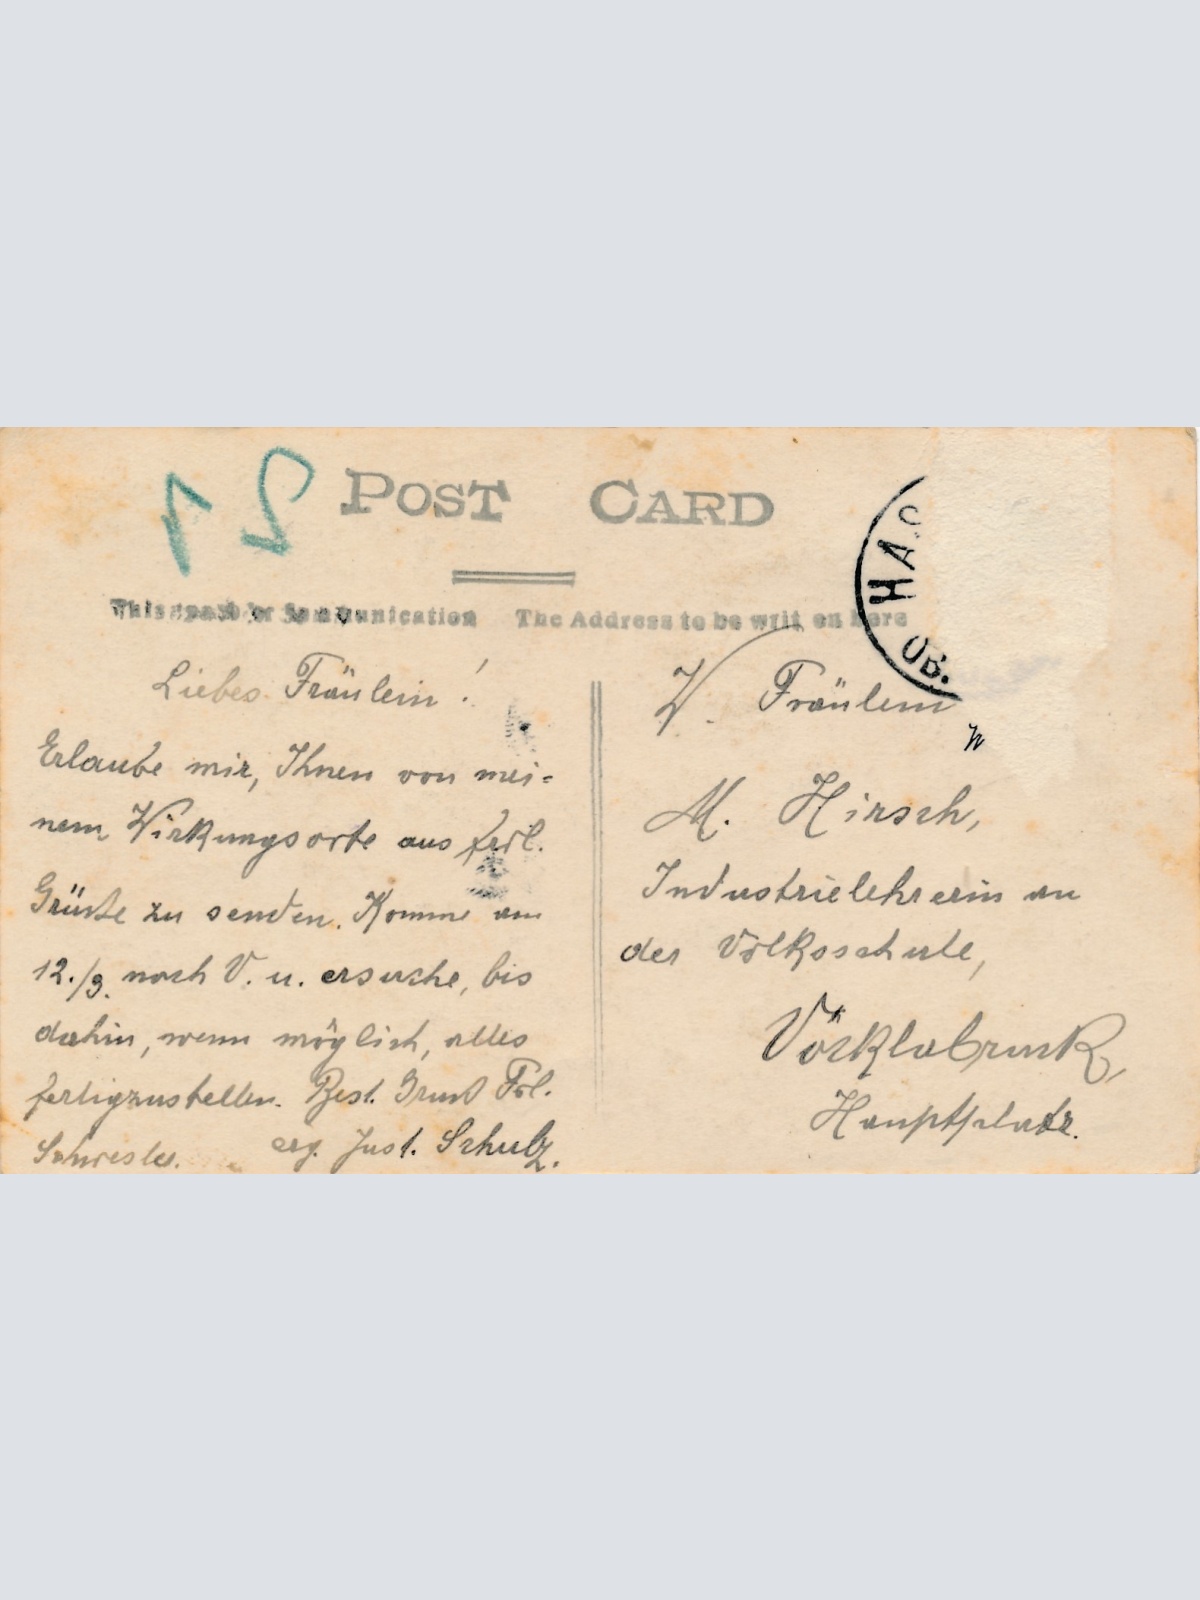 12
POST CARD
This space for Communication The Address to be written here
HA
OB.
Liebes Fräulein!
Erlaube mir, Ihnen von mei-
nem Wirkungsorte aus
Grüße zu senden. Komme am
12./9. nach V. u. ersuche, bis
dahin, wenn möglich, alles
fertigzustellen. Best. Gruß Frl.
Schwester. erg. Just. Schulz.
W. Fräulein
M. Hirsch,
Industrielehrerin an
der Volksschule,
Vöcklabruck,
Hauptplatz.